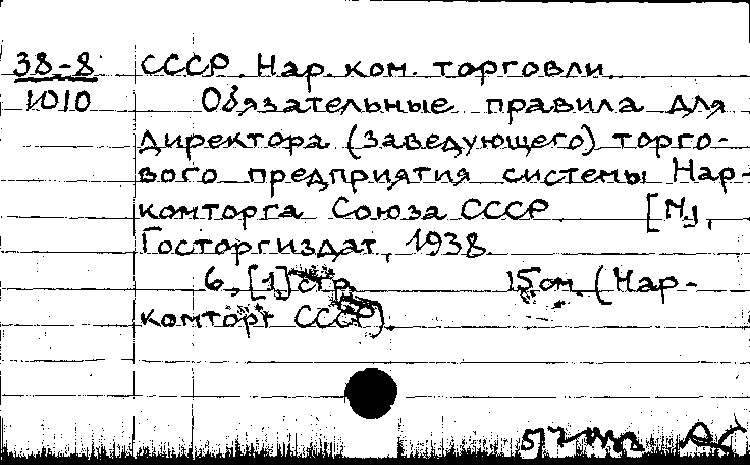 38-8 СССР. Нар. ком. торговли.
1010 Обязательные правила для
директора (заведующего) торго-
вого предприятия системы Нар-
комторга Союза СССР. [М],
Госторгиздат, 1938.
6, [1] стр. 15 см. (Нар-
комторг СССР).